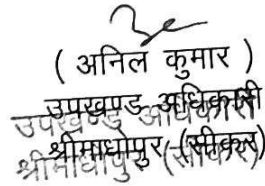 ( अनिल कुमार )
उपखण्ड अधिकारी
श्रीमाधोपुर (सीकर)
उपखण्ड अधिकारी
श्रीमाधोपुर (सीकर)